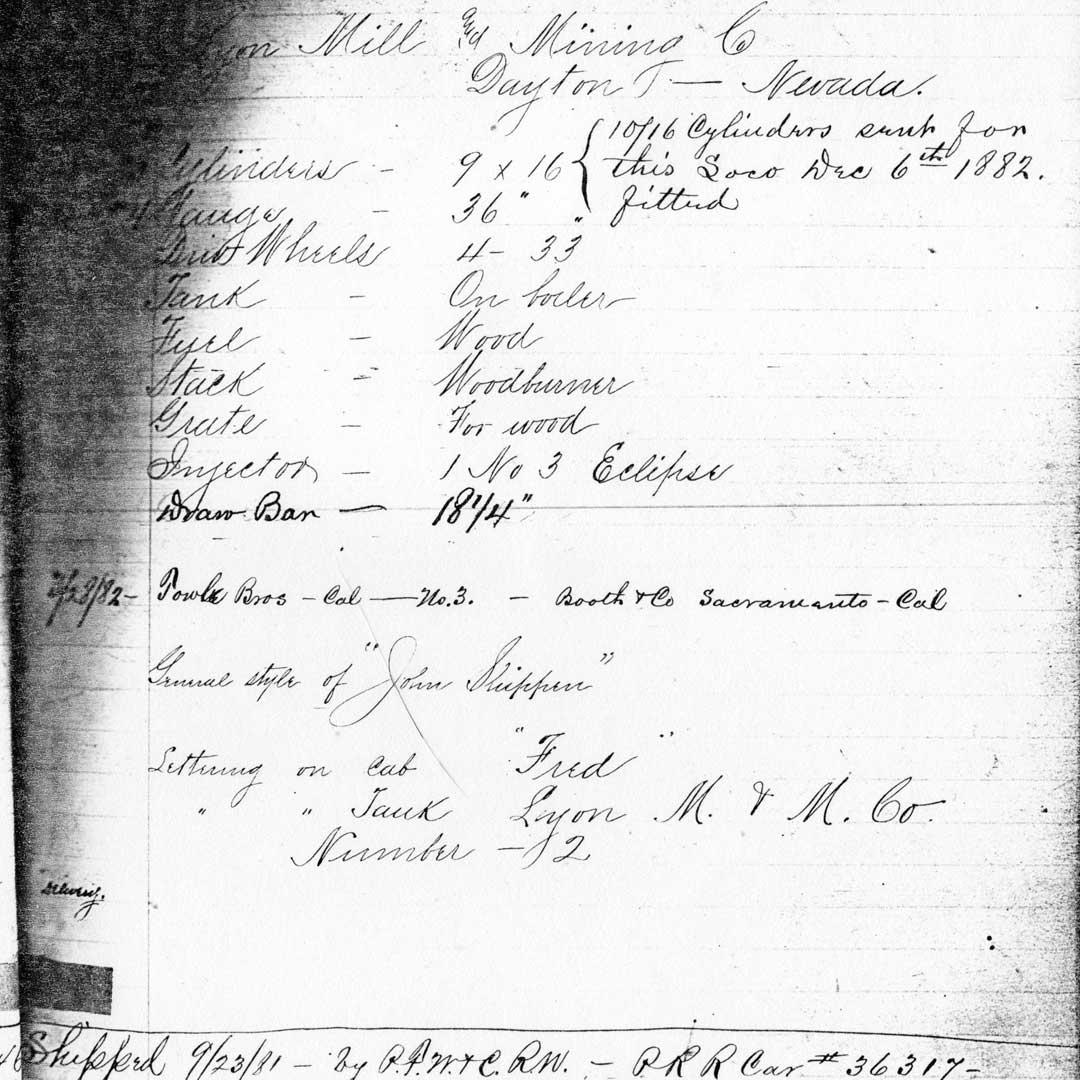 Lyon Mill and Mining C
Dayton T — Nevada.
Cylinders - 9 x 16 { 10/16 Cylinders sent for
this Loco Dec 6th 1882.
fitted
Gauge - 36"
Wheels 4 - 33"
Tank - On boiler
Fuel - Wood
Stack - Woodburner
Grate - For wood
Injector - 1 No 3 Eclipse
Draw Bar — 18 1/4"
Towle Bros - Cal — No. 3. - Booth & Co Sacramento - Cal
General style of "John Skippen"
Lettering on Cab "Fred"
" " Tank Lyon M. & M. Co.
Number - 2
Delivery.
Shipped 9/23/81 - by P. F. W. & C. R.W. - P R R Car # 36317 -